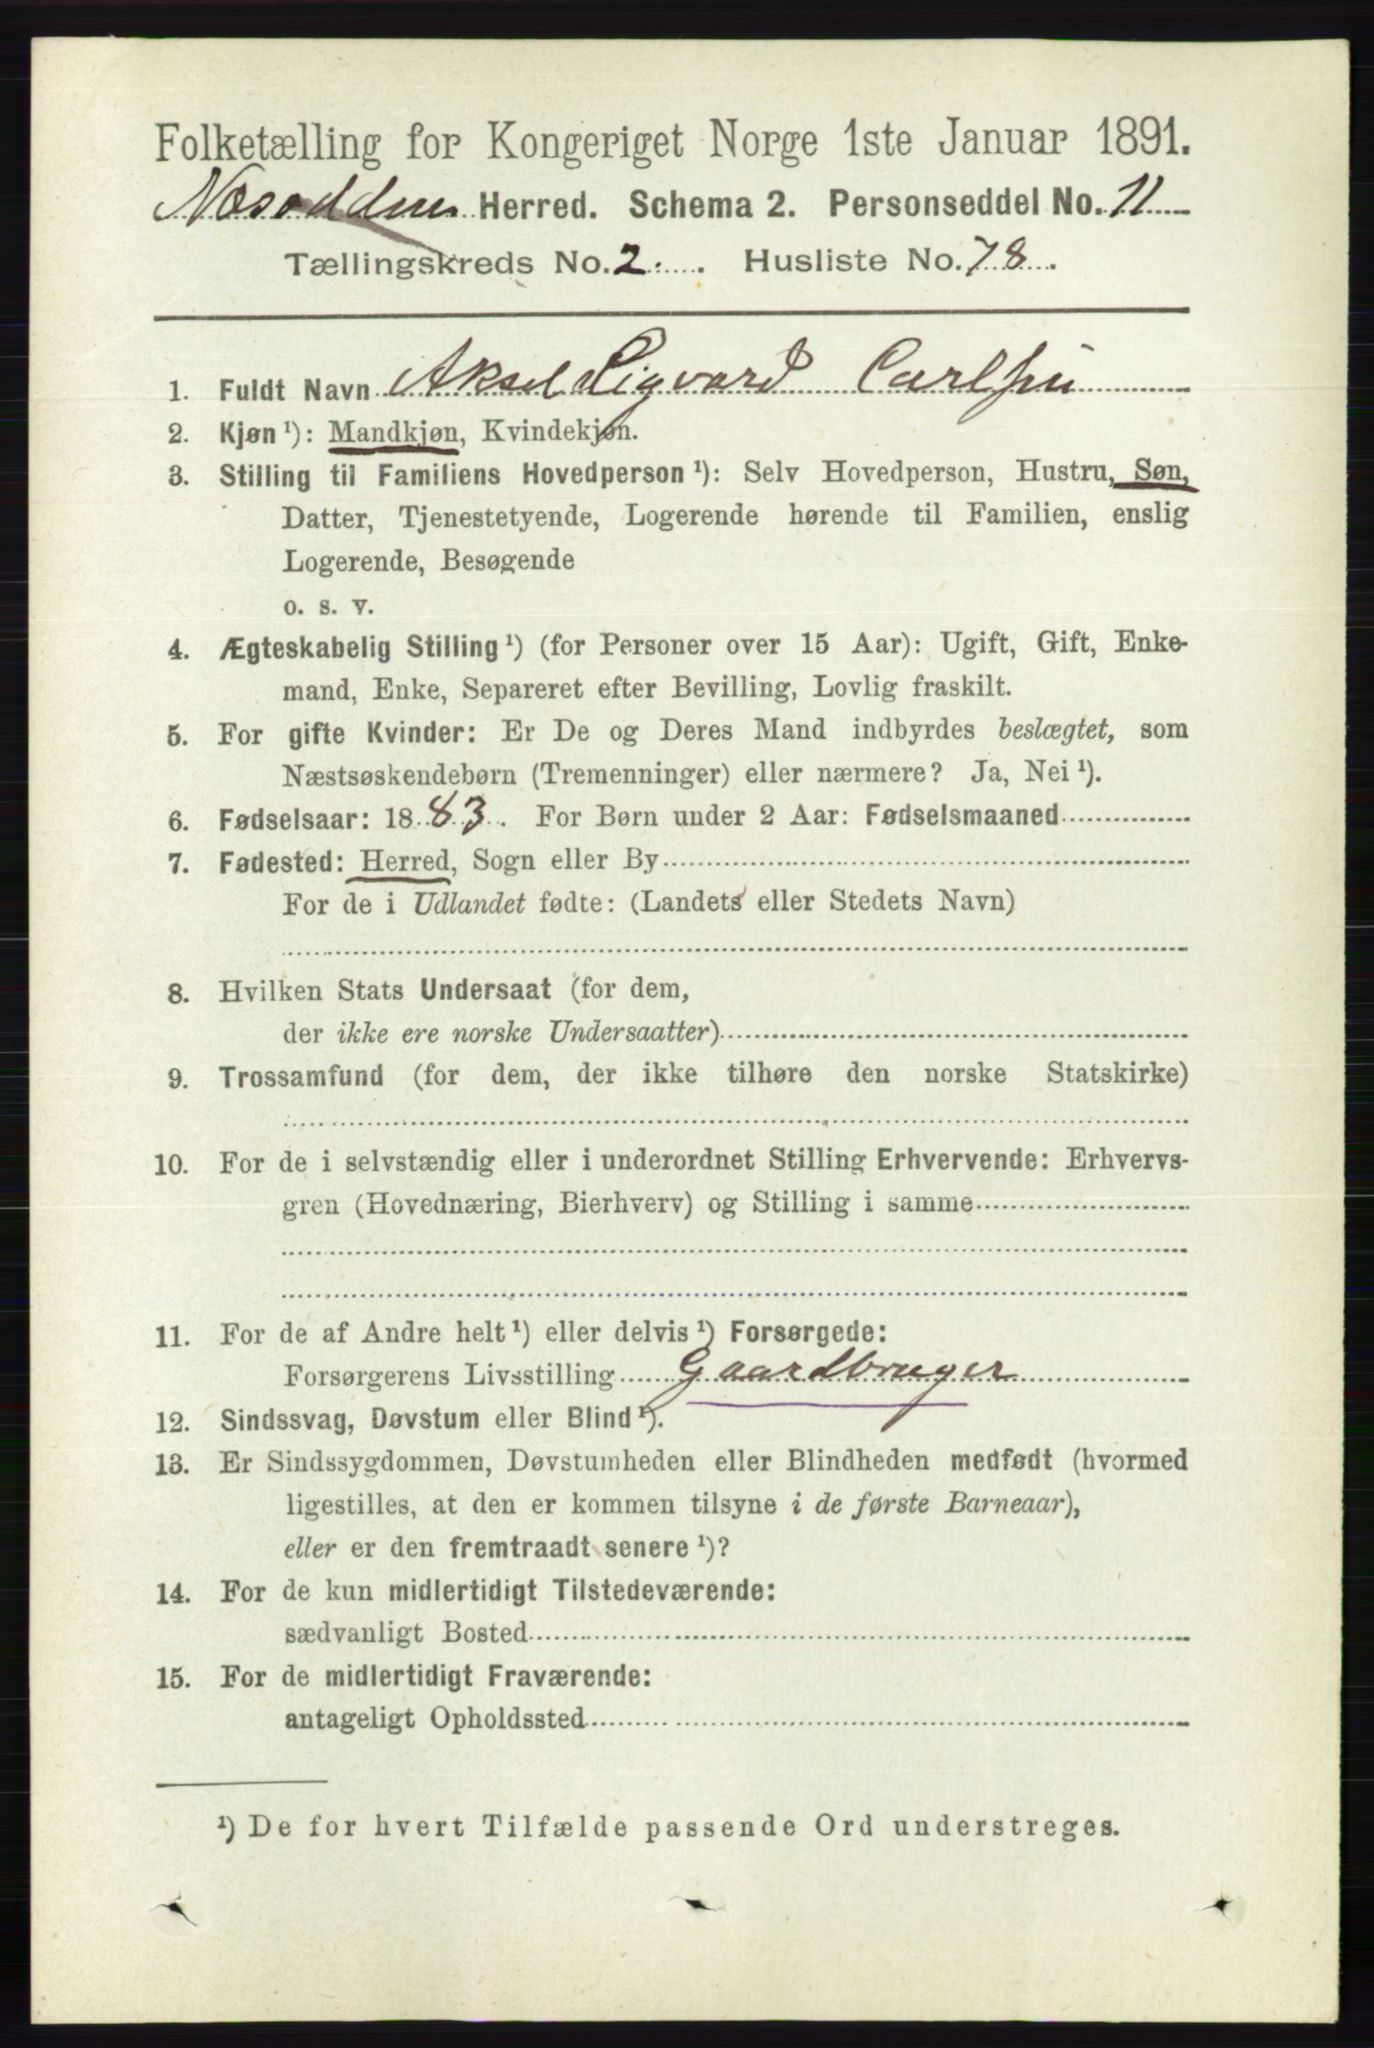 Folketælling for Kongeriget Norge 1ste Januar 1891.
Næsodden Herred. Schema 2. Personseddel No. 11
Tællingskreds No. 2. Husliste No. 78.
1. Fuldt Navn Aksel Sigvard Carlsen
2. Kjøn ¹): Mandkjøn, Kvindekjøn.
3. Stilling til Familiens Hovedperson ¹): Selv Hovedperson, Hustru, Søn,
Datter, Tjenestetyende, Logerende hørende til Familien, enslig
Logerende, Besøgende
o. s. v.
4. Ægteskabelig Stilling ¹) (for Personer over 15 Aar): Ugift, Gift, Enke-
mand, Enke, Separeret efter Bevilling, Lovlig fraskilt.
5. For gifte Kvinder: Er De og Deres Mand indbyrdes beslægtet, som
Næstsøskendebørn (Tremenninger) eller nærmere? Ja, Nei ¹).
6. Fødselsaar: 1883. For Børn under 2 Aar: Fødselsmaaned
7. Fødested: Herred, Sogn eller By
For de i Udlandet fødte: (Landets eller Stedets Navn)
8. Hvilken Stats Undersaat (for dem,
der ikke ere norske Undersaatter)
9. Trossamfund (for dem, der ikke tilhøre den norske Statskirke)
10. For de i selvstændig eller i underordnet Stilling Erhvervende: Erhvervs-
gren (Hovednæring, Bierhverv) og Stilling i samme
11. For de af Andre helt ¹) eller delvis ¹) Forsørgede:
Forsørgerens Livsstilling Gaardbruger
12. Sindssvag, Døvstum eller Blind ¹).
13. Er Sindssygdommen, Døvstumheden eller Blindheden medfødt (hvormed
ligestilles, at den er kommen tilsyne i de første Barneaar),
eller er den fremtraadt senere ¹)?
14. For de kun midlertidigt Tilstedeværende:
sædvanligt Bosted
15. For de midlertidigt Fraværende:
antageligt Opholdssted
¹) De for hvert Tilfælde passende Ord understreges.